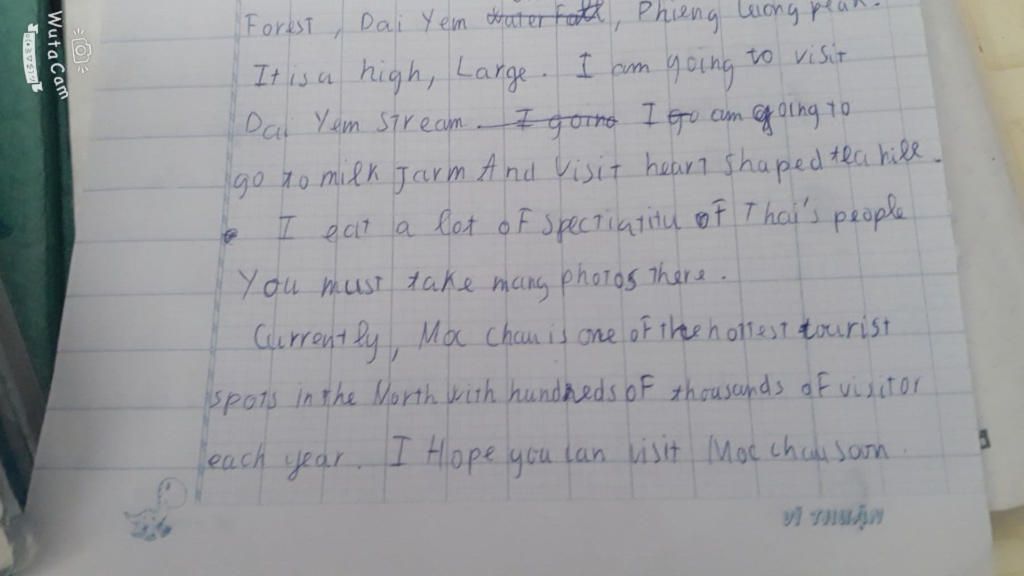 Forest, Dai Yem water fall, Phieng Luong peak.
It is a high, Large. I am going to visit
Dai Yem stream. I going I go am going to
go to milk Jarm And Visit heart shaped tea hill.
I eat a lot of spectiatitu of Thai's people
You must take many photos There.
Currently, Moc Chau is one of the hottest tourist
spots in the North with hundreds of thousands of visitor
each year. I Hope you can visit Moc chau soon.
WutaCam